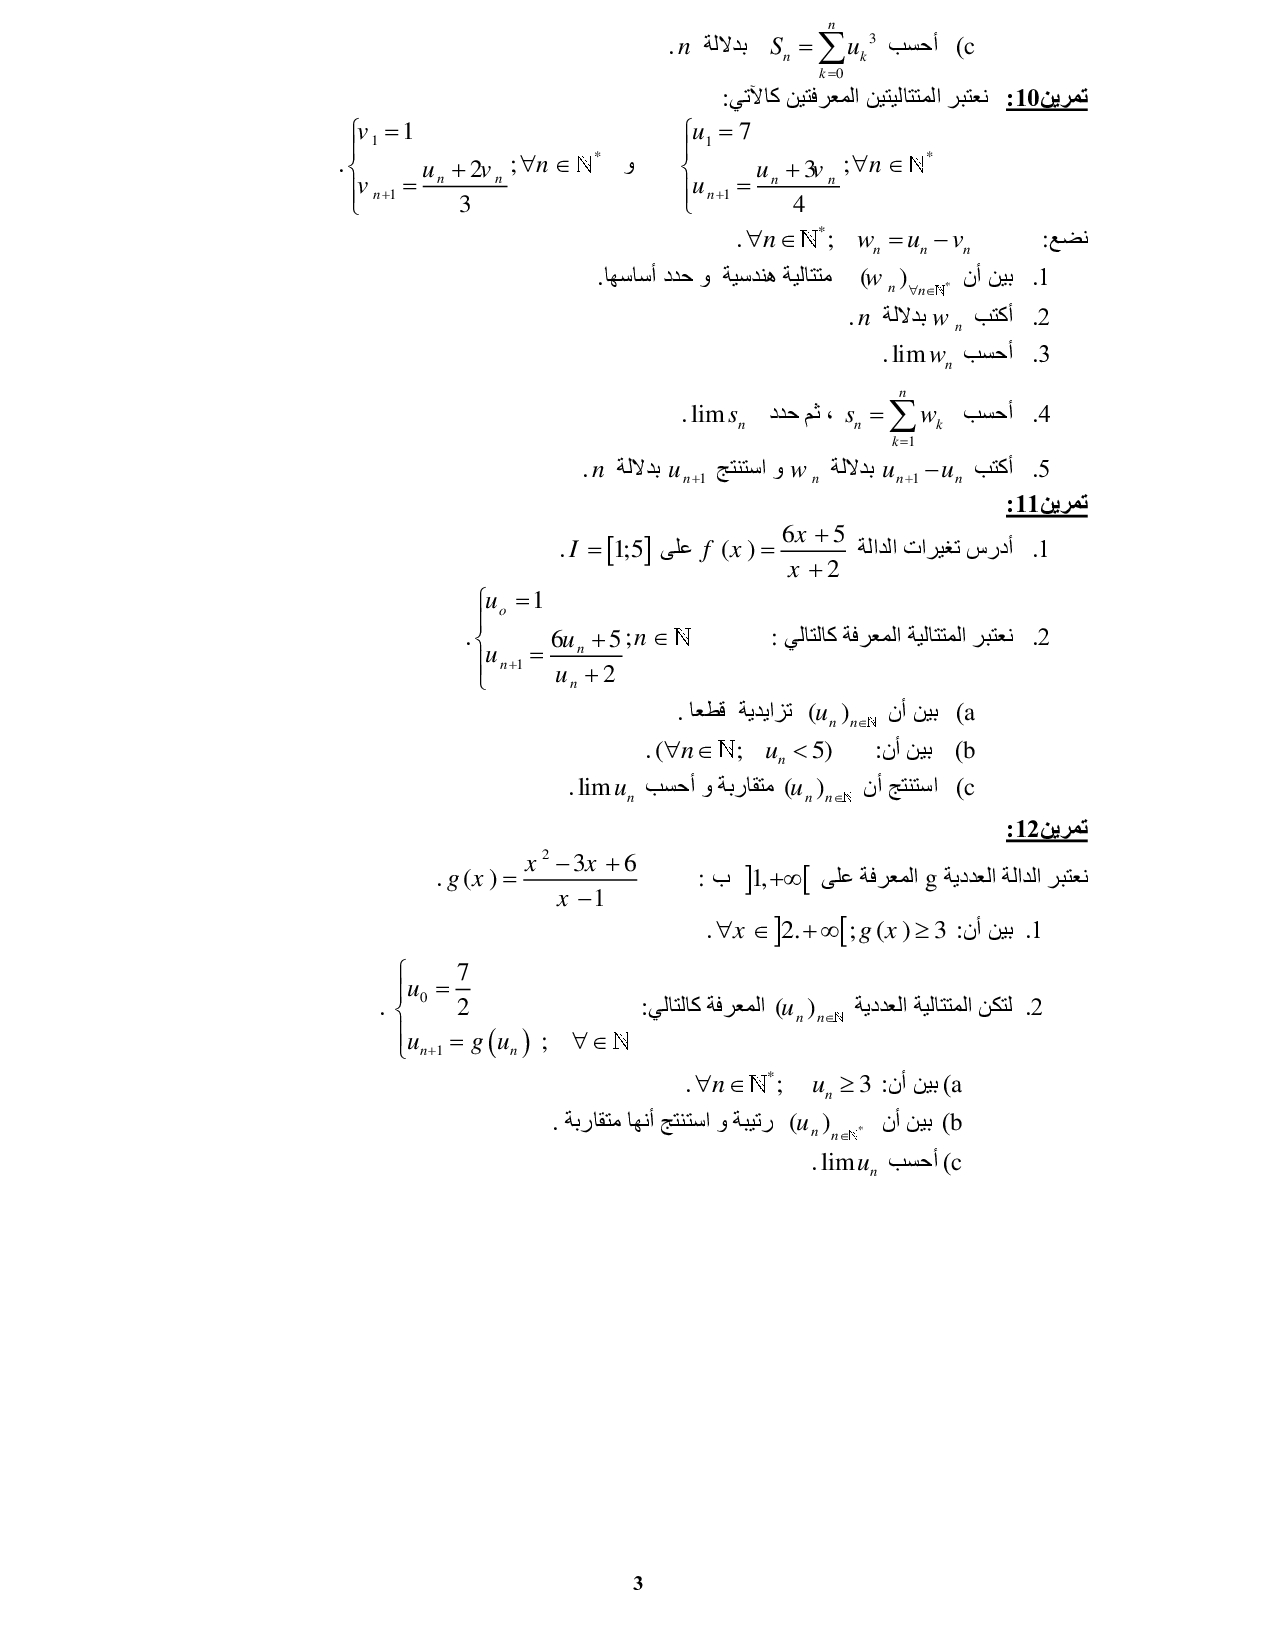 c) أحسب $S_n = \sum_{k=0}^{n} u_k{}^3$ بدلالة $n$ .
تمرين10: نعتبر المتتاليتين المعرفتين كالآتي:
$\begin{cases} u_1 = 7 \\ u_{n+1} = \frac{u_n + 3v_n}{4} ; \forall n \in \mathbb{N}^* \end{cases}$ و $\begin{cases} v_1 = 1 \\ v_{n+1} = \frac{u_n + 2v_n}{3} ; \forall n \in \mathbb{N}^* \end{cases}$ .
نضع: $\forall n \in \mathbb{N}^* ; \quad w_n = u_n - v_n$ .
1. بين أن $(w_n)_{\forall n \in \mathbb{N}^*}$ متتالية هندسية و حدد أساسها.
2. أكتب $w_n$ بدلالة $n$ .
3. أحسب $\lim w_n$ .
4. أحسب $s_n = \sum_{k=1}^{n} w_k$ ، ثم حدد $\lim s_n$ .
5. أكتب $u_{n+1} - u_n$ بدلالة $w_n$ و استنتج $u_{n+1}$ بدلالة $n$ .
تمرين11:
1. أدرس تغيرات الدالة $f(x) = \frac{6x+5}{x+2}$ على $I = [1;5]$ .
2. نعتبر المتتالية المعرفة كالتالي : $\begin{cases} u_o = 1 \\ u_{n+1} = \frac{6u_n + 5}{u_n + 2} ; n \in \mathbb{N} \end{cases}$ .
a) بين أن $(u_n)_{n \in \mathbb{N}}$ تزايدية قطعا .
b) بين أن: $(\forall n \in \mathbb{N}; \quad u_n < 5)$ .
c) استنتج أن $(u_n)_{n \in \mathbb{N}}$ متقاربة و أحسب $\lim u_n$ .
تمرين12:
نعتبر الدالة العددية g المعرفة على $]1,+\infty[$ ب : $g(x) = \frac{x^2 - 3x + 6}{x-1}$ .
1. بين أن: $\forall x \in ]2.+\infty[ ; g(x) \geq 3$ .
2. لتكن المتتالية العددية $(u_n)_{n \in \mathbb{N}}$ المعرفة كالتالي: $\begin{cases} u_0 = \frac{7}{2} \\ u_{n+1} = g(u_n) ; \quad \forall \in \mathbb{N} \end{cases}$ .
a) بين أن: $\forall n \in \mathbb{N}^* ; \quad u_n \geq 3$ .
b) بين أن $(u_n)_{n \in \mathbb{N}^*}$ رتيبة و استنتج أنها متقاربة .
c) أحسب $\lim u_n$ .
3